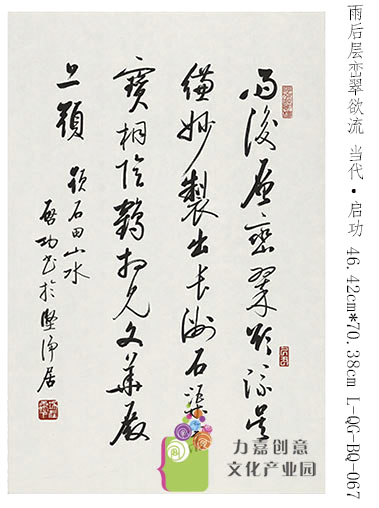 雨后层峦翠欲流 当代·启功 46.42cm*70.38cm L-QG-BQ-067
雨後層巒翠欲流吳
縑妙製出長洲石渠
寶 陰鶴 見文華殿
上頭
題石田山水
啟功書於堅淨居
力嘉创意
文化产业园